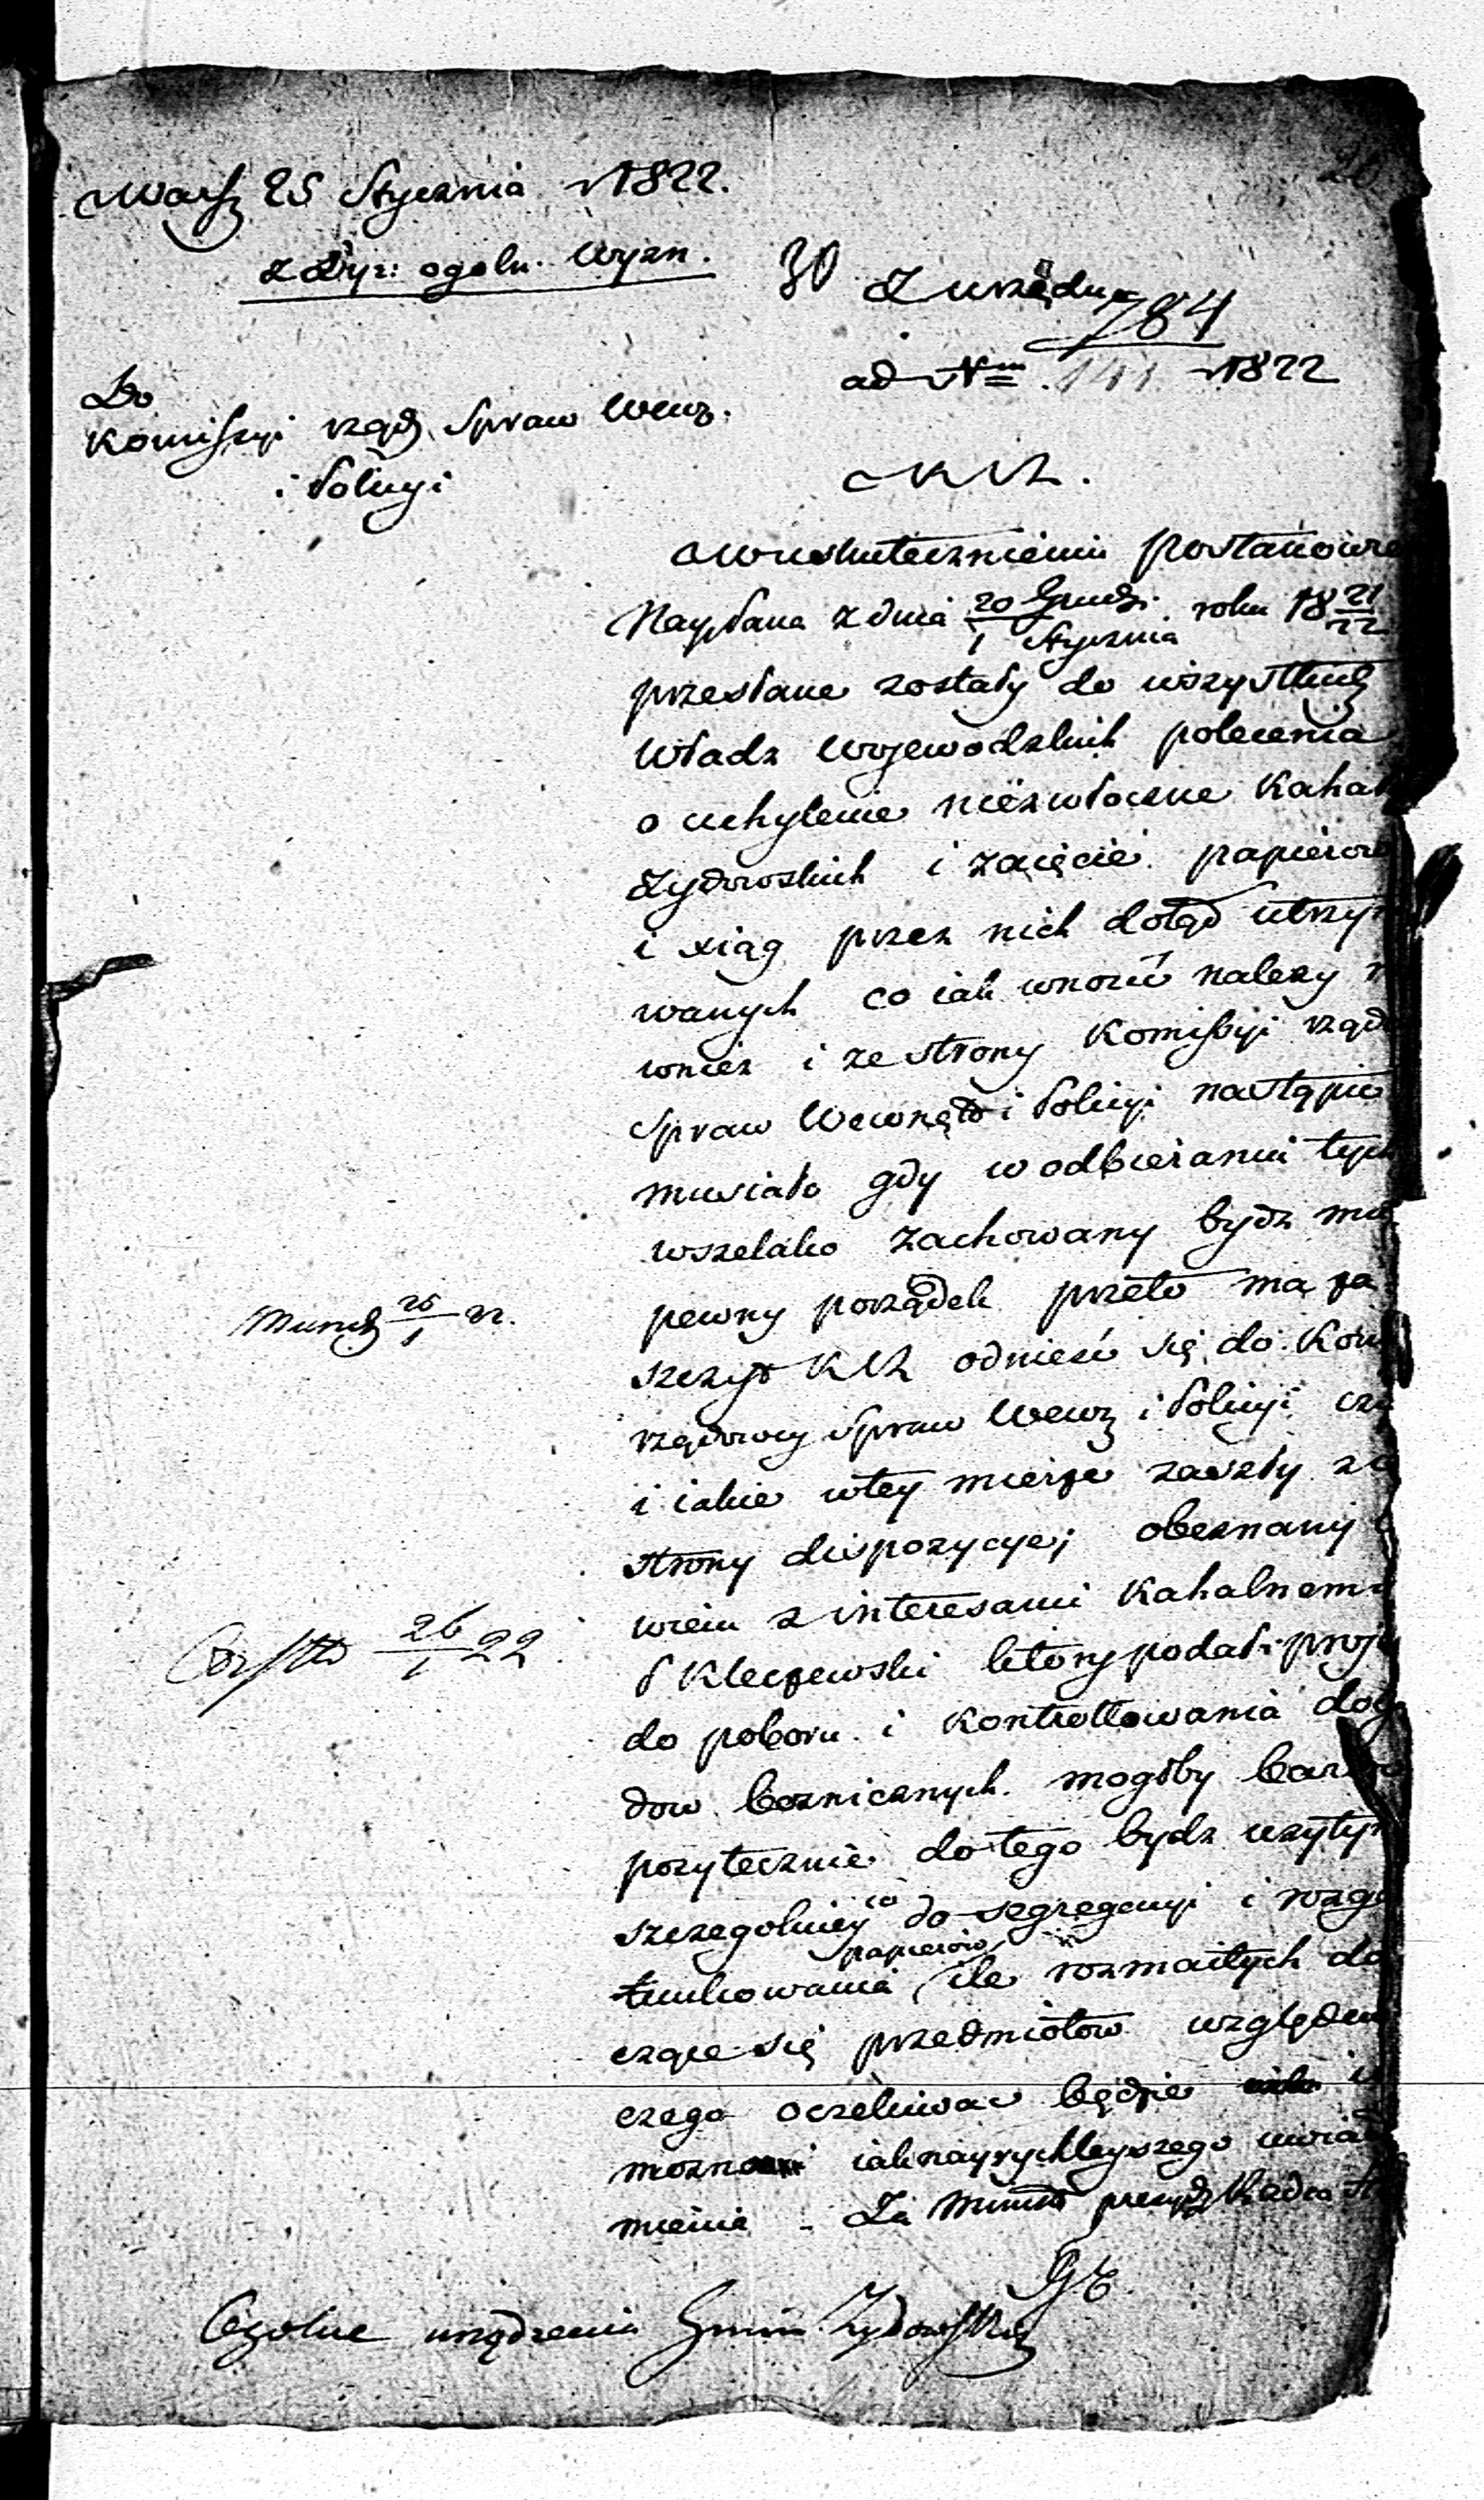 Warsz 25 Stycznia 1822.
z Dyr: ogoln. Wyzn.
30 Z urzędu
784
ad Nrm 141 1822
Do
Komissyi rząd. Spraw Wewn.
i Policyi
KR.
W uskutecznieniu postanowie
Nayjaśn z dnia 20 Grudz. / 1 Stycznia roku 18 21/22
przesłane zostały do wszystkich
Władz Wojewodzkich polecenia
o uchylenie niezwłoczne Kahał
Żydowskich i zaięcie papierow
i xiąg przez nich dotąd utrzym
wanych co iak wnosić nalezy r
wniez i ze strony Komissyi rząd
Spraw Wewnętr i Policyi nastąpić
musiało gdy w odbieraniu tych
wszelako zachowany bydz mu
pewny porządek przeto ma za
szczyt KR odnieść się do Kom
rządowey Spraw Wewn i Policyi czy
i iakie w tey mierze zaszły z iey
strony dispozycye; obeznany b
wiem z interesami Kahalnemi
P Kleczewski ktory podał proje
do poboru i kontrollowania docho
dow boznicznych mogłby bardzo
pozytecznie do tego bydz uzytym
szczegolniey co do segregacyi i rozga
tunkowania papierow ile rozmaitych do
czące się przedmiotow względem
czego oczekiwac będzie
mozno iak nayrychleyszego uwiado
mienia - Za Ministr prezyd Radca St
Munch 26/1 22.
26/1 22
Ogolne urządzenia Gmin Zydowskich